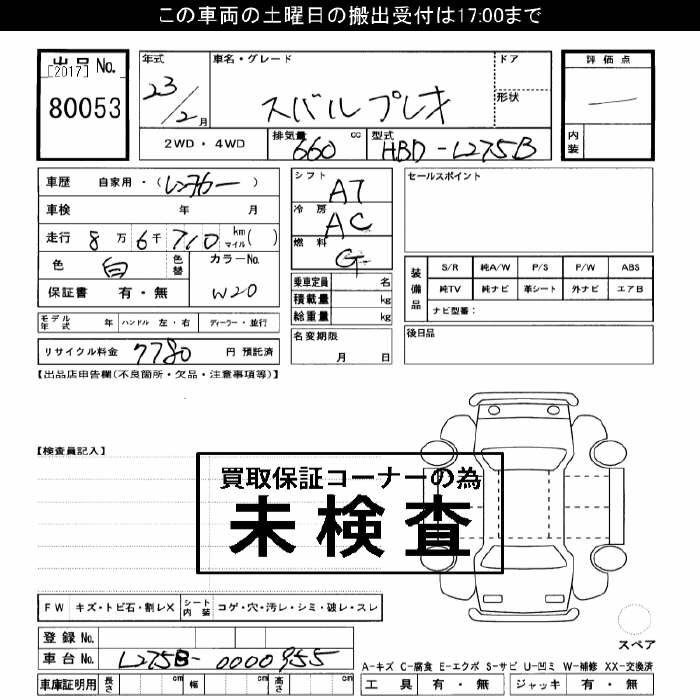 この車両の土曜日の搬出受付は17:00まで
出品 No.
[2017]
80053
年式
23/2月
車名・グレード
スバル プレオ
ドア
形状
2WD・4WD
排気量
660 cc
型式
HBD-L275B
評価点
—
内装
車歴 自家用・(レンタカー)
車検 年 月
走行 8万6千710 km マイル( )
色 白 色替 カラーNo.
W20
保証書 有・無
シフト AT
冷房 AC
燃料 G
乗車定員 名
積載量 kg
総重量 kg
セールスポイント
装備品
S/R 純A/W P/S P/W ABS
純TV 純ナビ 革シート 外ナビ エアB
ナビ型番:
モデル年式 年 ハンドル 左・右 ディーラー・並行
名変期限
月 日
後日品
リサイクル料金 7780 円 預託済
【出品店申告欄(不良箇所・欠品・注意事項等)】
【検査員記入】
買取保証コーナーの為
未検査
FW キズ・トビ石・割レX シート内装 コゲ・穴・汚レ・シミ・破レ・スレ
登録 No.
車台 No. L275B-0000955
スペア
A-キズ C-腐食 E-エクボ S-サビ U-凹ミ W-補修 XX-交換済
車庫証明用 長さ cm 幅 cm 高さ cm
工具 有・無 ジャッキ 有・無